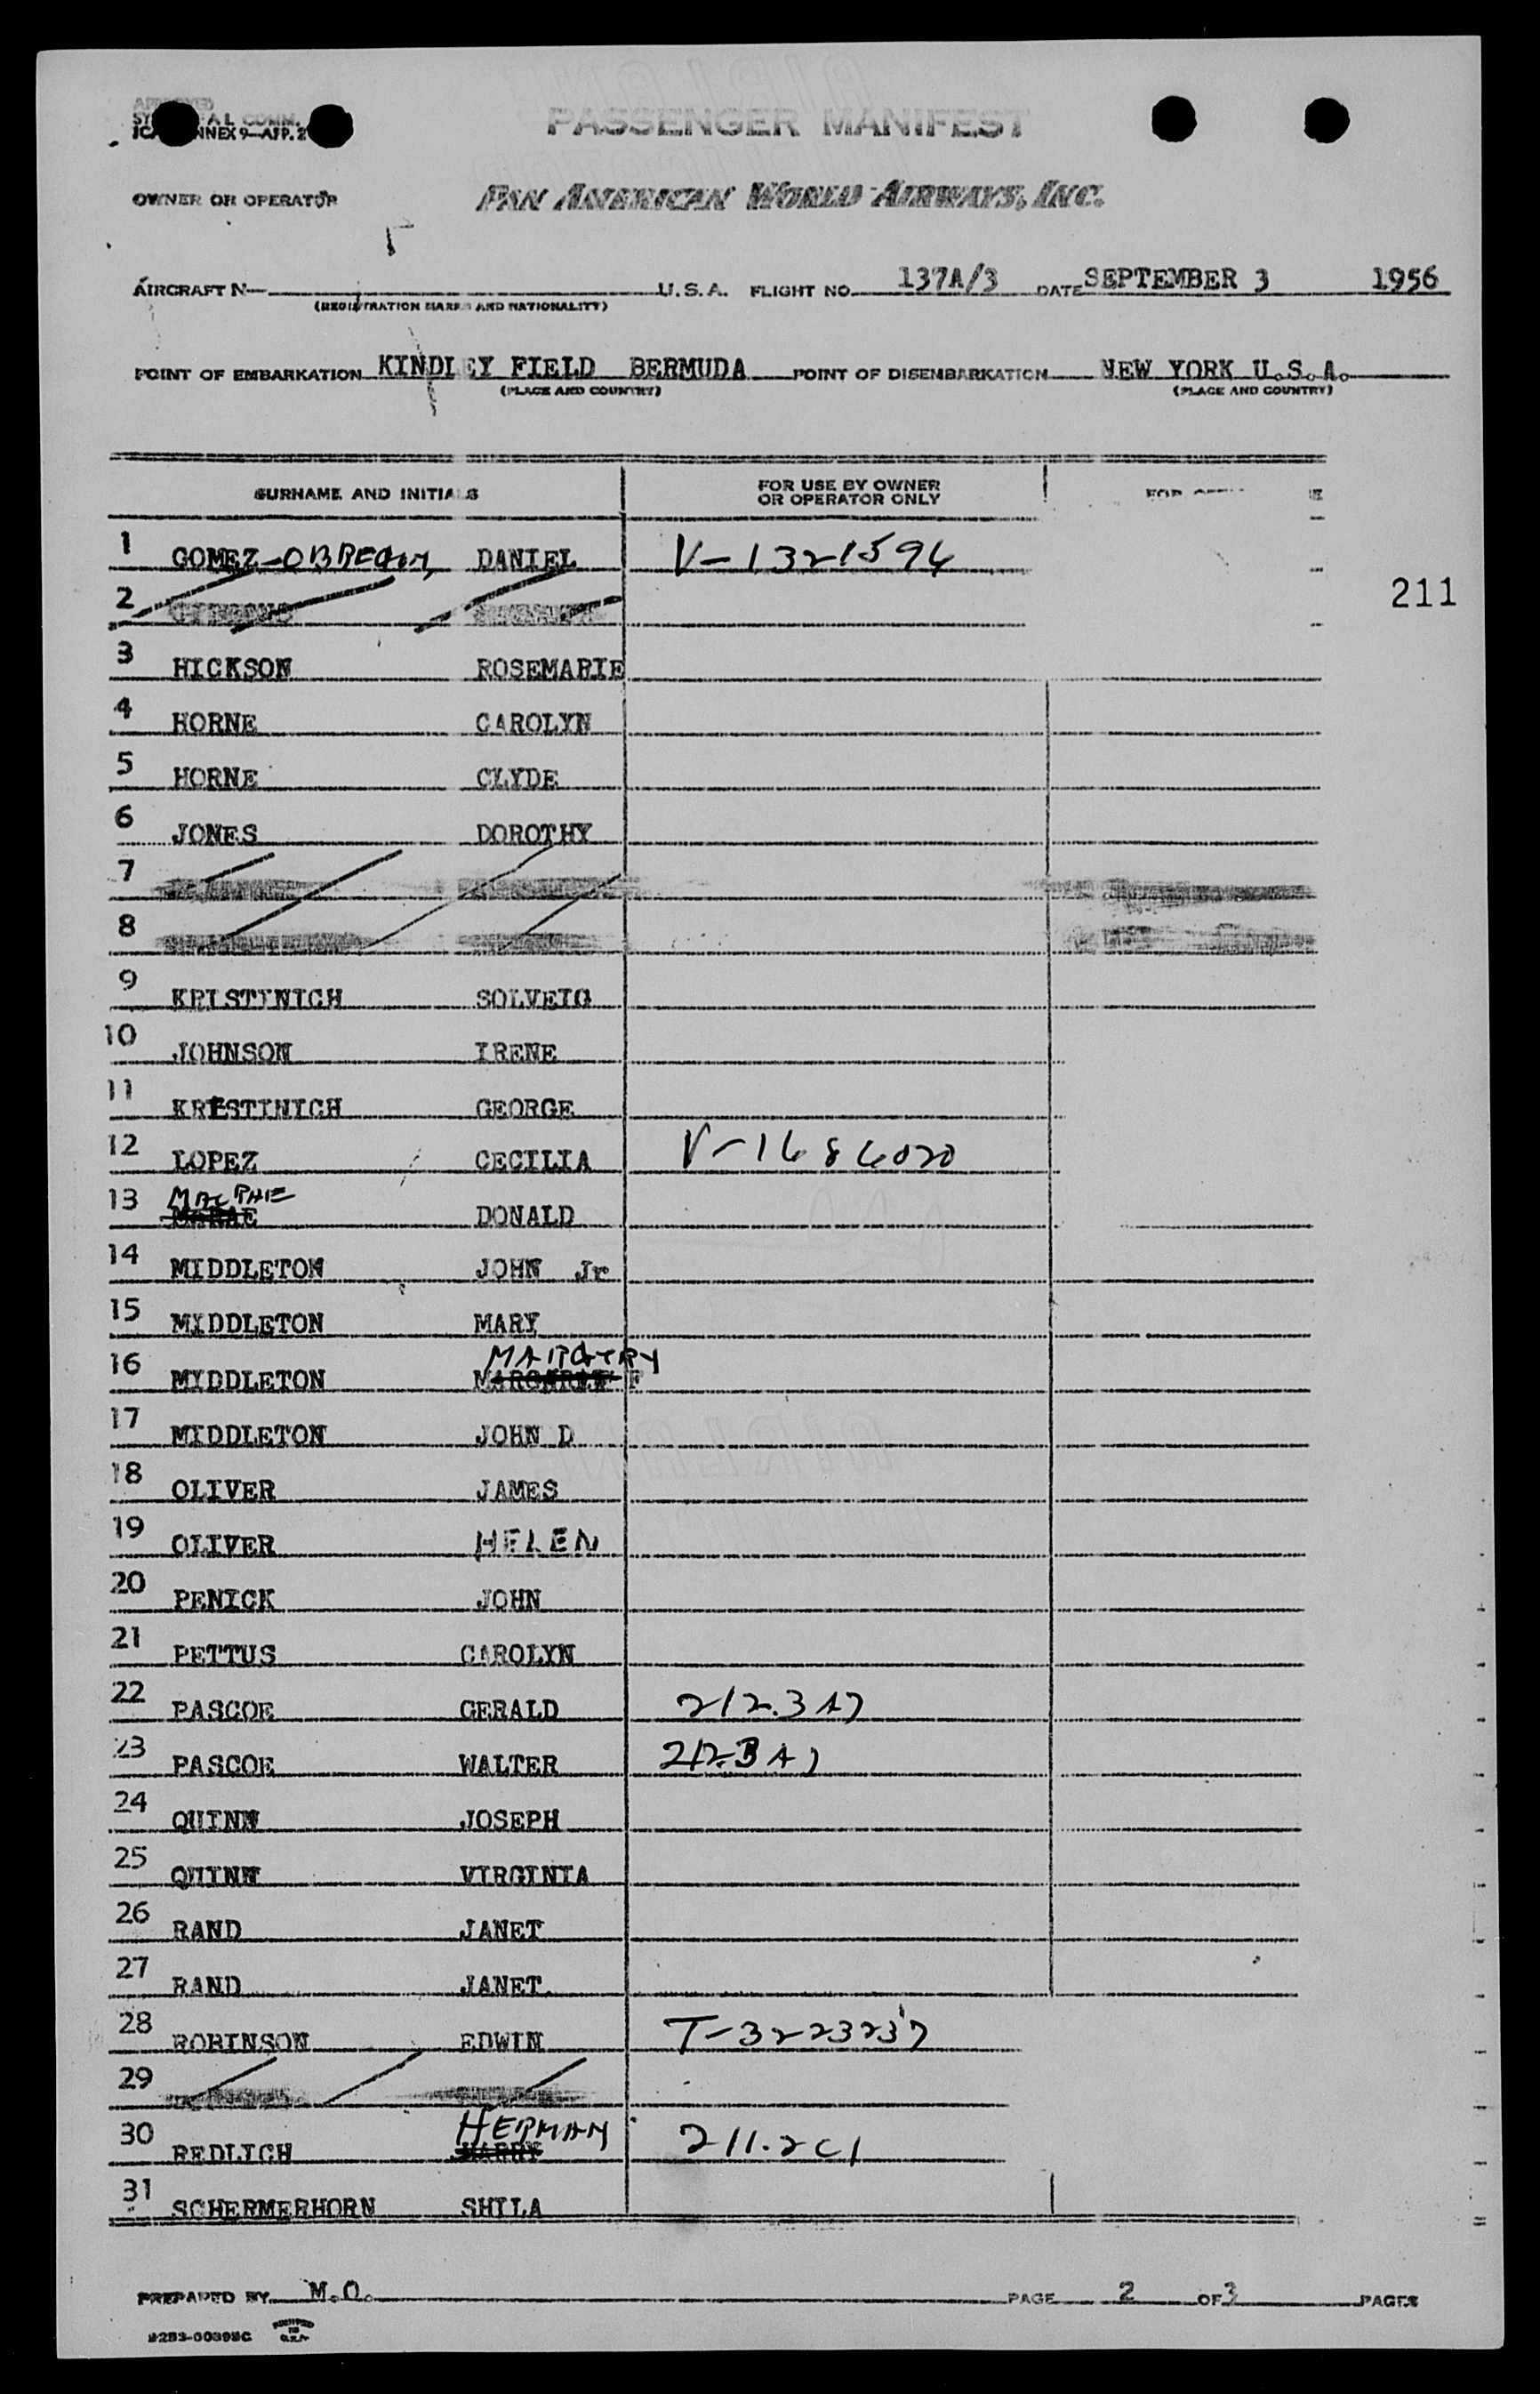 PASSENGER MANIFEST
OWNER OR OPERATOR PAN AMERICAN WORLD AIRWAYS, INC.
AIRCRAFT N— U.S.A. FLIGHT NO. 137A/3 DATE SEPTEMBER 3 1956
(REGISTRATION MARKS AND NATIONALITY)
POINT OF EMBARKATION KINDLEY FIELD BERMUDA POINT OF DISEMBARKATION NEW YORK U.S.A.
(PLACE AND COUNTRY) (PLACE AND COUNTRY)
SURNAME AND INITIALS FOR USE BY OWNER OR OPERATOR ONLY FOR
1 GOMEZ-OBREGON, DANIEL V-1321594
2
211
3 HICKSON ROSEMARIE
4 HORNE CAROLYN
5 HORNE CLYDE
6 JONES DOROTHY
7
8
9 KRISTINICH SOLVEIG
10 JOHNSON IRENE
11 KRESTINICH GEORGE
12 LOPEZ CECILIA V-1686020
13 MACPHIE DONALD
14 MIDDLETON JOHN Jr
15 MIDDLETON MARY
16 MIDDLETON MARGERY F
17 MIDDLETON JOHN D
18 OLIVER JAMES
19 OLIVER HELEN
20 PENICK JOHN
21 PETTUS CAROLYN
22 PASCOE GERALD 212.3A7
23 PASCOE WALTER 212.3A7
24 QUINN JOSEPH
25 QUINN VIRGINIA
26 RAND JANET
27 RAND JANET
28 ROBINSON EDWIN T-3223237
29
30 REDLICH HERMAN HARRY 211.2C1
31 SCHERMERHORN SHILA
PREPARED BY M.O. PAGE 2 OF 3 PAGES